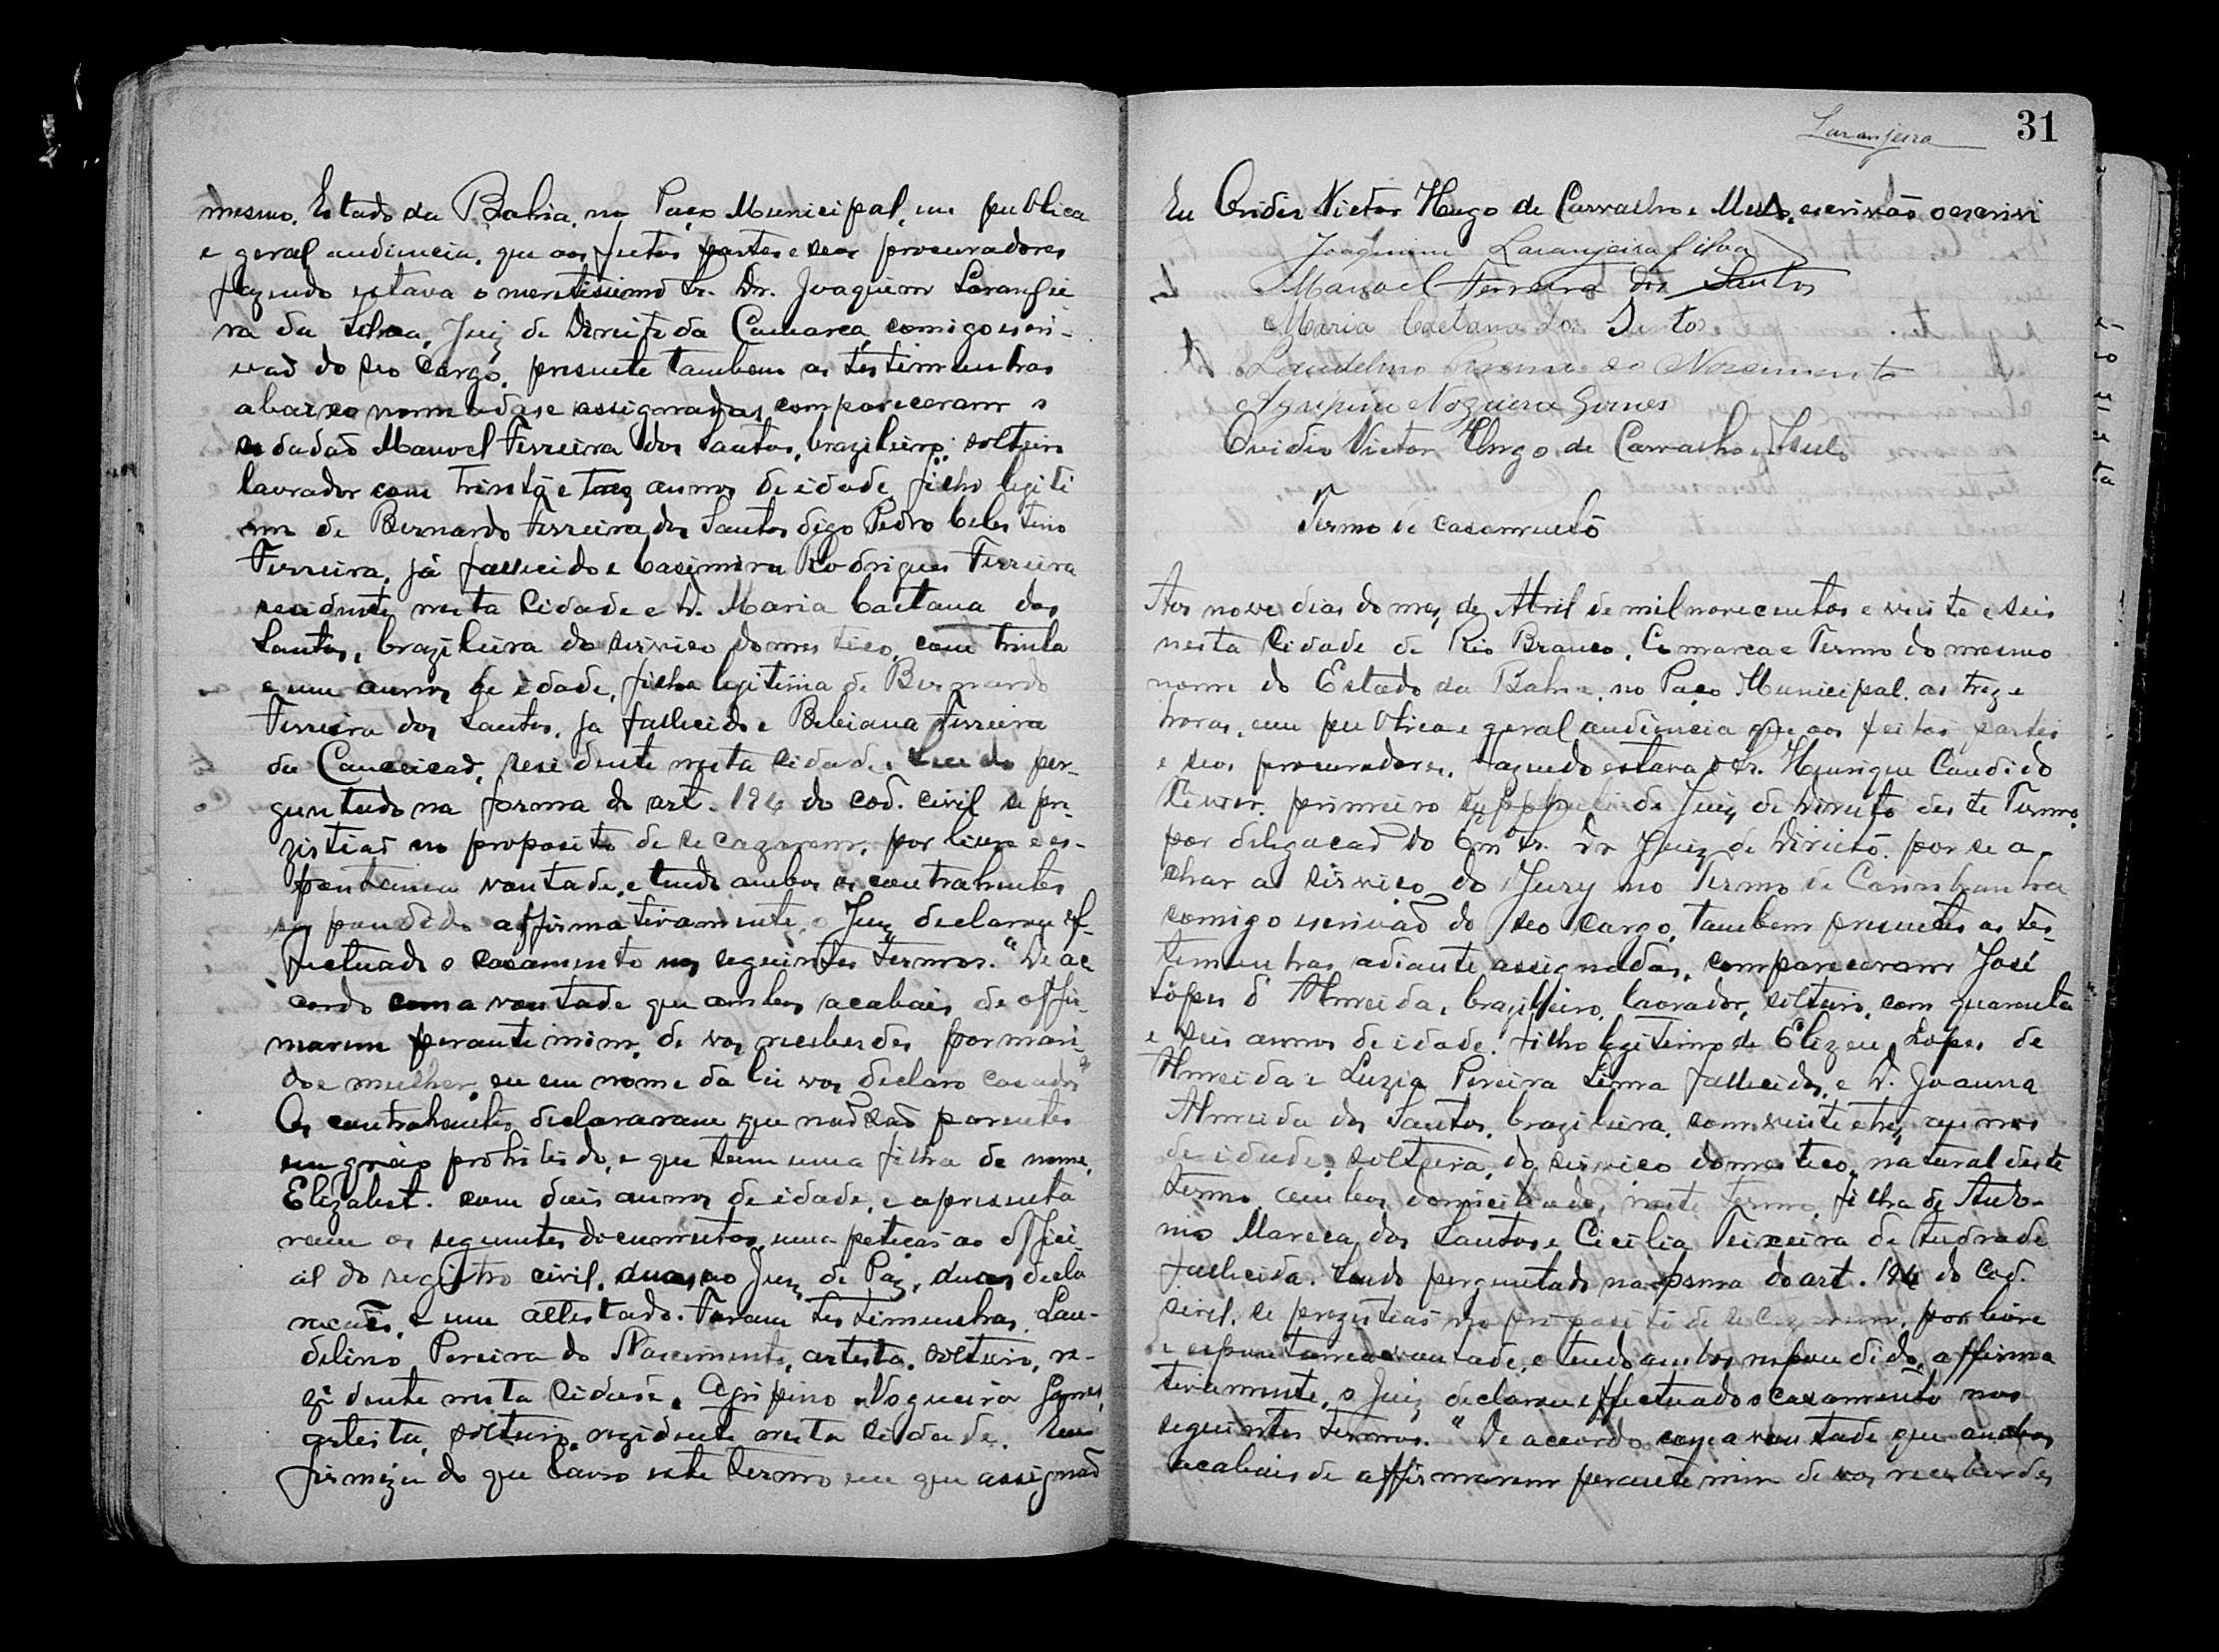 mesmo, Estado da Bahia, no Paço Municipal, em publica
e geral audiencia, que aos feitos partes e seos procuradores
fazendo estava o meretissimo Sr. Dr. Joaquim Laranjei
ra da Silva, Juiz de Direito da Comarca, comigo escri-
vaõ do seo cargo, presente tambem as testimunhas
abaixo nomeadas e assignadas, compareceram o
cidadaõ Manoel Ferreira dos Santos, brazileiro, solteiro
lavrador com trinta e trez annos de idade, filho legiti
mo de Bernardo Ferreira dos Santos digo Pedro Celestino
Ferreira, já fallecido e Casimira Rodrigues Ferreira
residente nesta Cidade e D. Maria Caetana dos
Santos, brazileira do serviço domestico, com trinta
e um annos de idade, filha legitima de Bernardo
Ferreira dos Santos, ja fallecido e Bibiana Ferreira
da Conceicaõ, residente nesta cidade. Sendo per-
guntado na forma do art. 194 do cod. civil se pre-
zistiaõ no proposito de se cazarem, por livre e es-
pontanea vontade, e tendo ambos os contrahentes
respondido affirmativamente, o Juiz declarou ef-
fectuado o casamento nos seguintes termos. "De ac
cordo com a vontade que ambos acabais de affir-
marem perante mim, de vos receberdes por mari-
do e mulher, eu em nome da lei vos declaro casados"
Os contrahentes declararam que naõ saõ parentes
em gráo prohibido, e que tem uma filha de nome,
Elizabet. com dois annos de idade, e apresenta
ram os seguintes documentos, uma petiçaõ ao offici-
al do registro civil, duas ao Juiz de Paz, duas decla
rações, e um attestado. Foram testimunhas, Lau-
delino Pereira do Nascimento, artista, solteiro, re-
zidente nesta cidade, Agripino Nogueira Gomes,
artista, solteiro, rezidente nesta cidade. Em
firmeza do que lavro este termo em que assignaõ
Laranjeira
31
Eu Ovidio Victor Hugo de Carvalho e Mello, escrivão o escrivi
Joaquim Laranjeira Silva
Manoel Ferreira dos Santos
Maria Caetana dos Santos
Laudelino Pereira do Nascimento
Agripino Nogueira Gomes
Ovidio Victor Hugo de Carvalho e Mello
Termo de casamento
Aos nove dias do mez de Abril de mil novecentos e vinte e seis
nesta Cidade de Rio Branco, Comarca e Termo do mesmo
nome do Estado da Bahia, no Paço Municipal, as treze
horas, em publica e geral audiencia que aos feitos partes
e seos procuradores, fazendo estava o Sr. Henrique Candido
primeiro supplente de Juiz de Direito deste Termo,
por delegacaõ do Exmº Sr. Dr Juiz de Direito, por se a-
char a serviço do Jury no Termo de Carinhanha
comigo escrivaõ do seo cargo, tambem presentes as tes-
temunhas adiante assignadas, compareceram José
Lopes d' Almeida, brazileiro, lavrador, solteiro, com quarenta
e seis annos de idade, filho legitimo de Elizeu Lopes de
Almeida e Luzia Pereira Lima fallecidos, e D. Joanna
Almeida dos Santos, brazileira, com vinte e trez annos
de idade, solteira, do serviço domestico, natural deste
termo, ambos domiciliados neste termo, filha de Anto-
nio dos Santos e Cicilia Teixeira de Andrade
fallecida. Sendo perguntado na forma do art. 194 do Cod.
civil, se prezistiaõ no proposito de se cazarem, por livre
e espontanea vontade, e tendo ambos respondido, affirma
tivamente, o Juiz declarou effectuado o casamento nos
seguintes termos. "De accordo com a vontade que ambos
acabais de affirmarem perante mim de vos receberdes